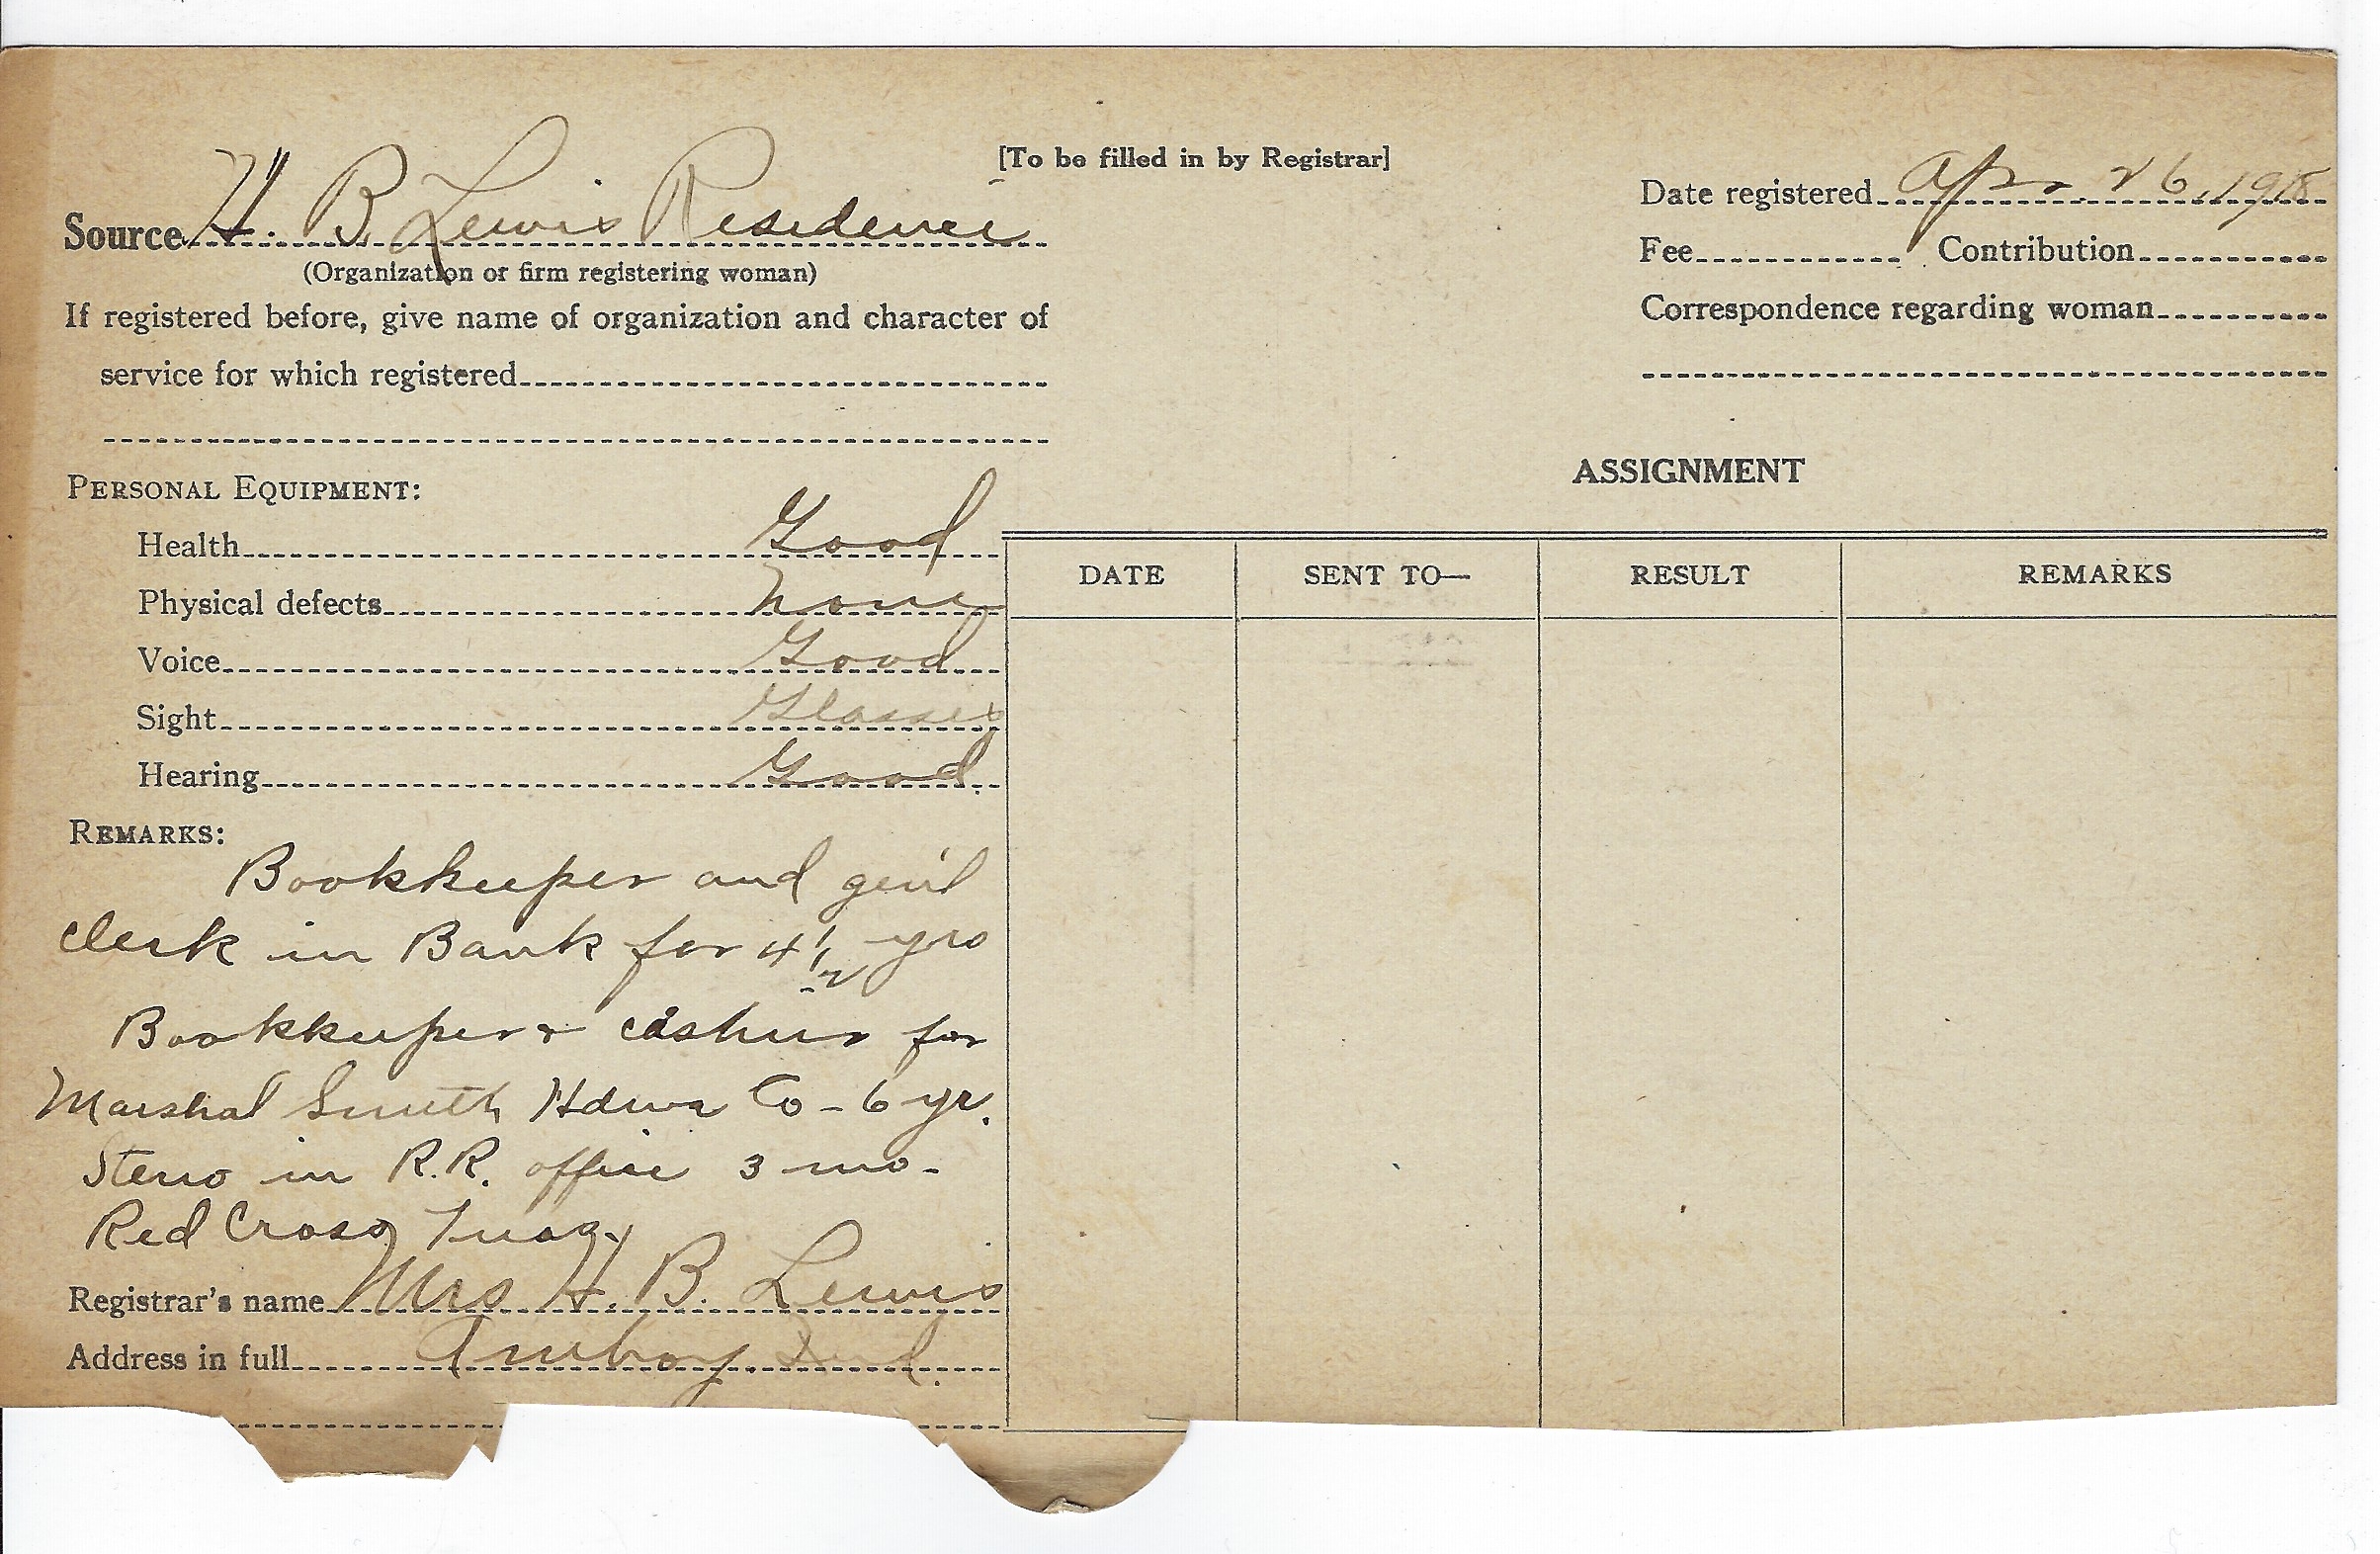 [To be filled in by Registrar]
Source H. B. Lewis Residence
(Organization or firm registering woman)
If registered before, give name of organization and character of
service for which registered
Date registered Apr. 26, 1918
Fee Contribution
Correspondence regarding woman
PERSONAL EQUIPMENT:
Health Good
Physical defects none
Voice Good
Sight Glasses
Hearing Good.
REMARKS:
Bookkeeper and gen'l
clerk in Bank for 4 1/2 yrs
Bookkeeper & cashier for
Marshal Smith Hdwr Co - 6 yr.
Steno in R.R. office 3 mo-
Red Cross Treas.
Registrar's name Mrs H. B. Lewis
Address in full Amboy Ind.
ASSIGNMENT
DATE SENT TO— RESULT REMARKS